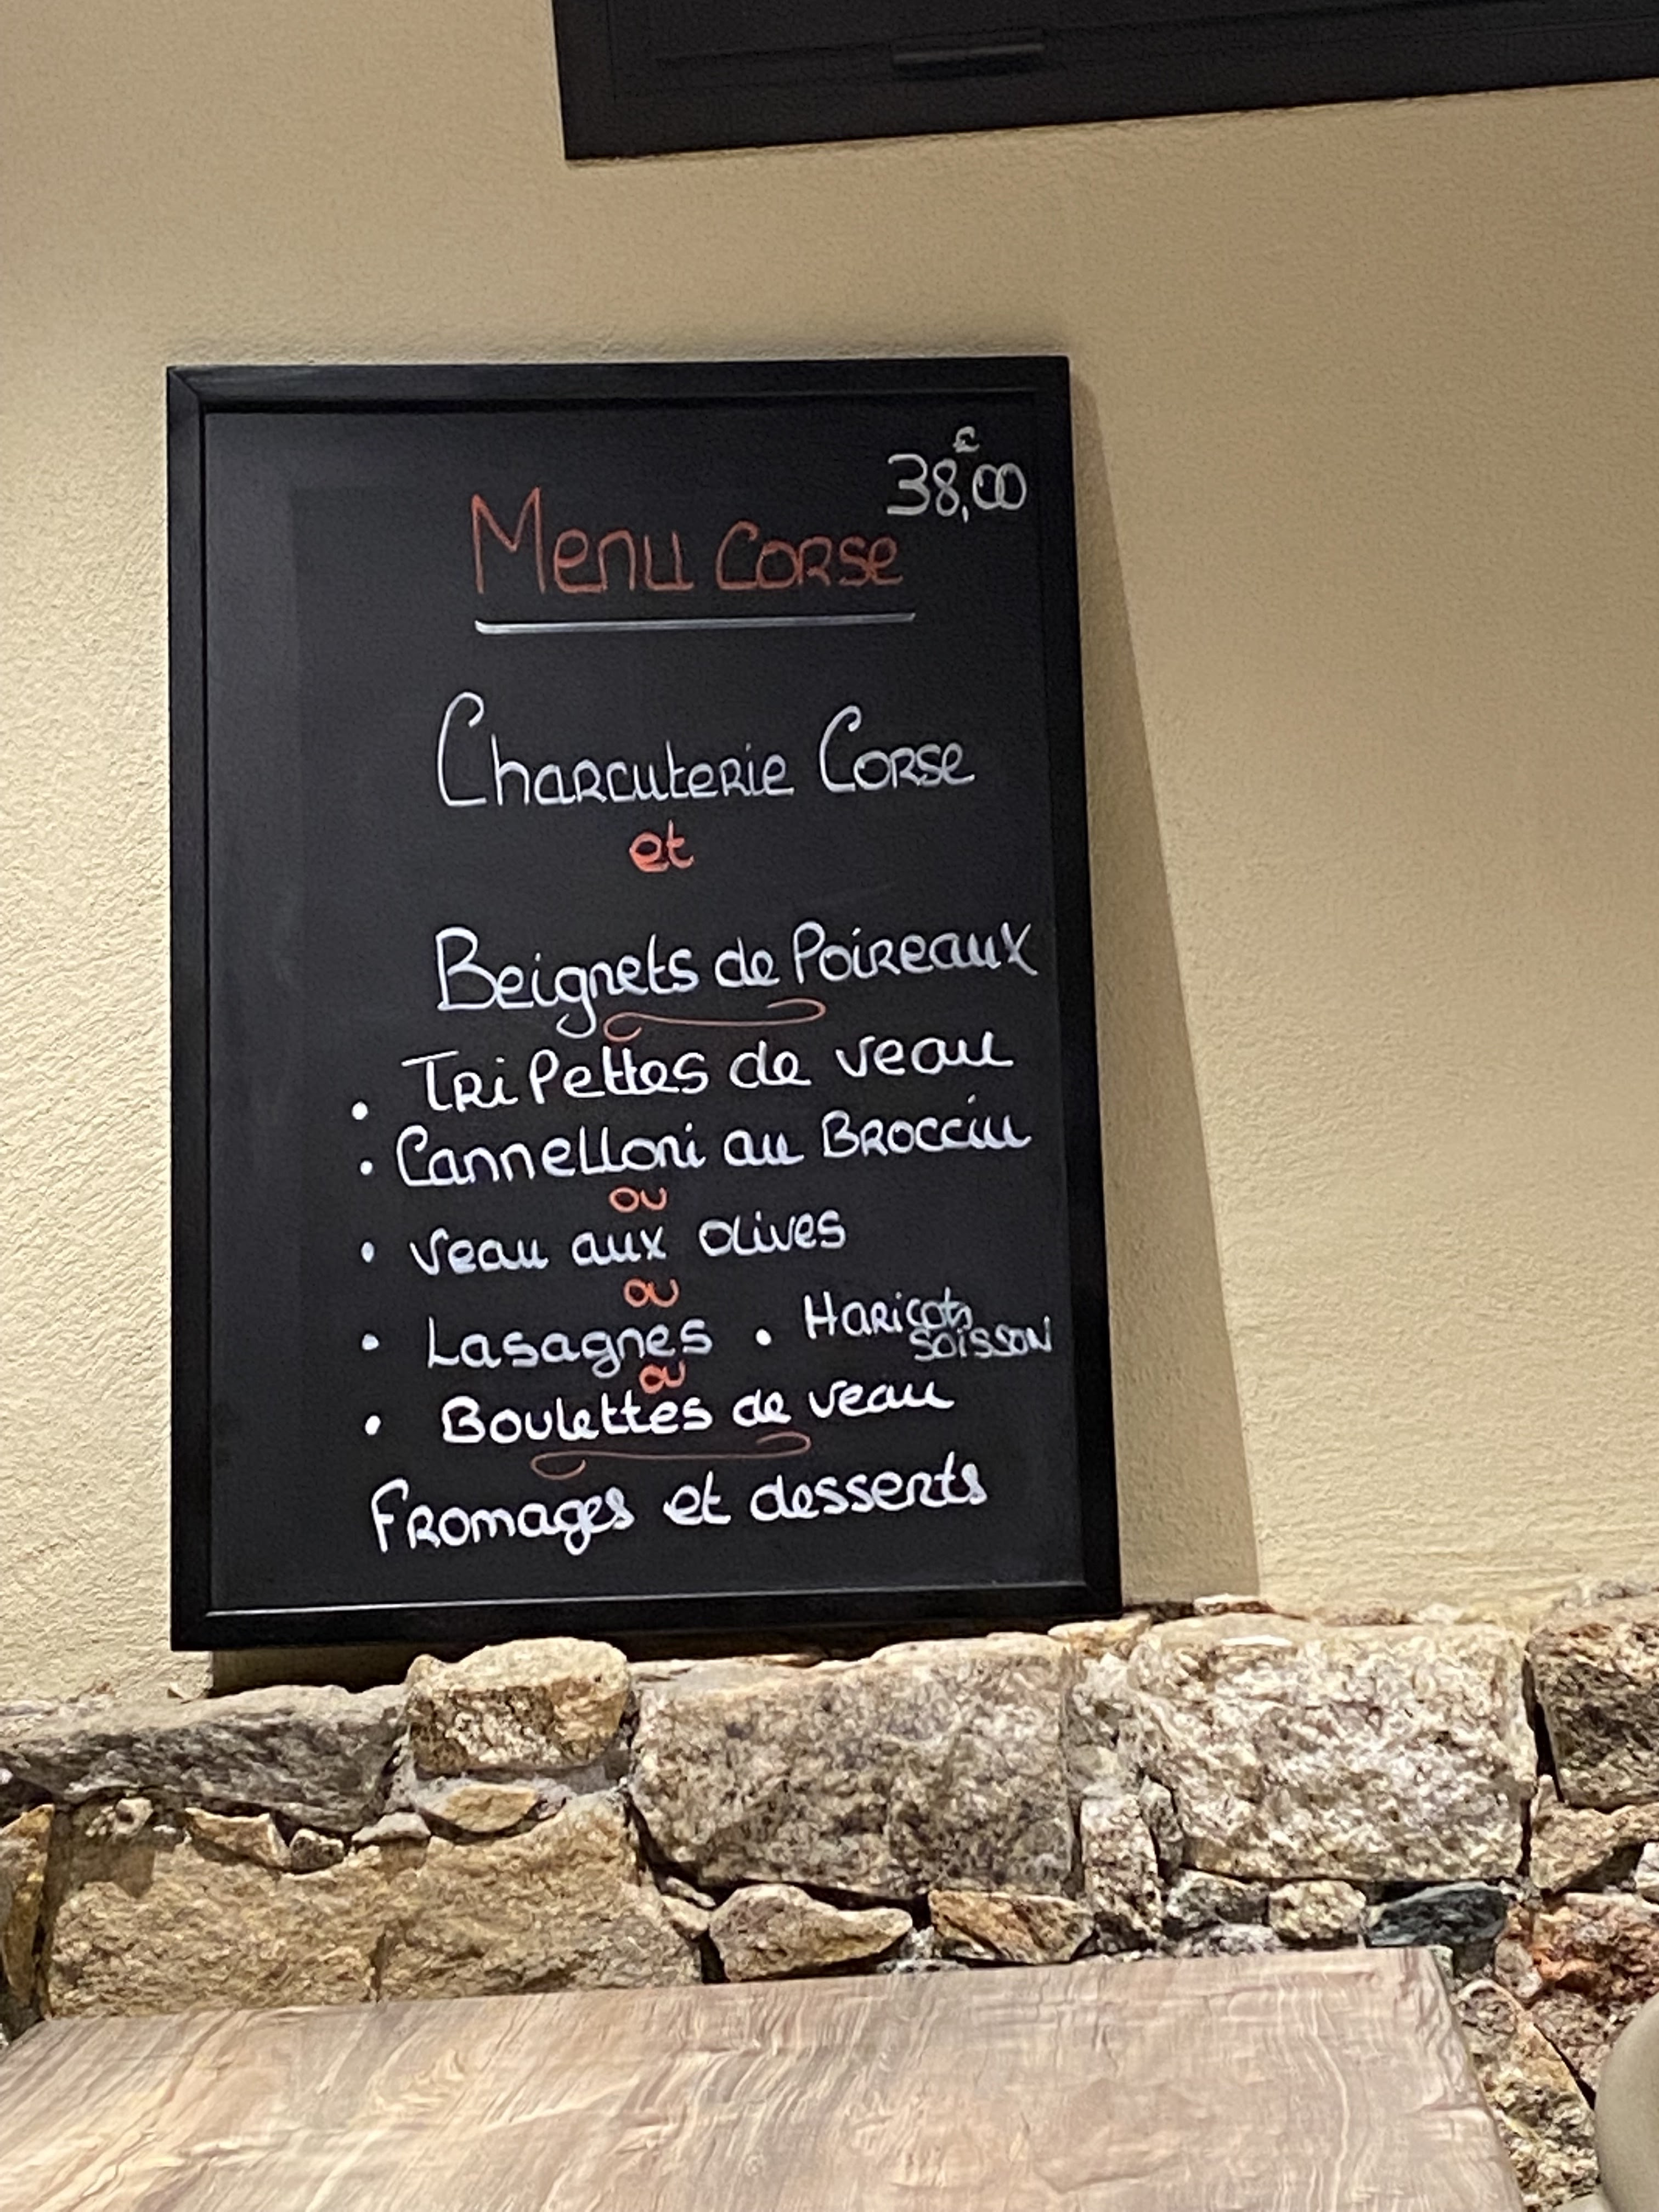 38,00 €
Menu Corse
Charcuterie Corse
et
Beignets de Poireaux
• Tripettes de veau
• Cannelloni au Brocciu
ou
• Veau aux olives
ou
• Lasagnes • Haricots
SOISSON
ou
• Boulettes de veau
Fromages et desserts